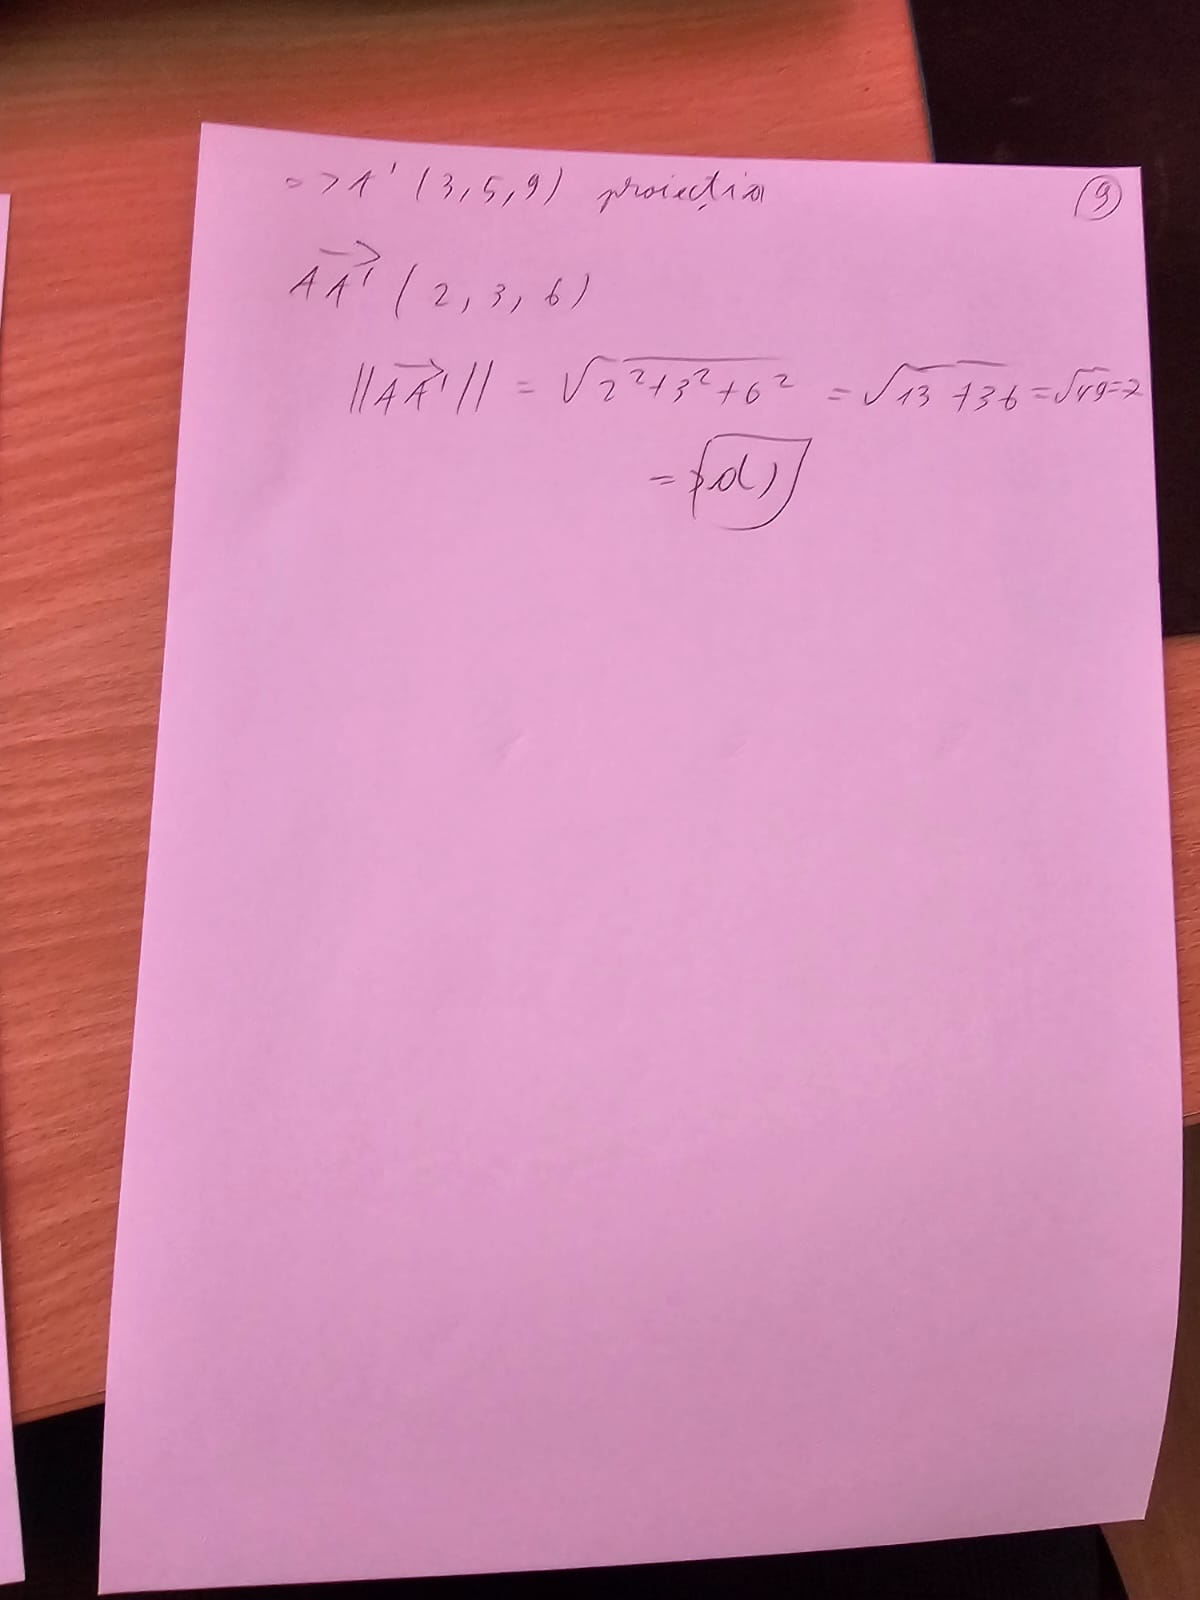 => A' (3, 5, 9) proiecția
9
AA' (2, 3, 6)
||AA'|| = √2²+3²+6² = √13+36 = √49=7
= d)